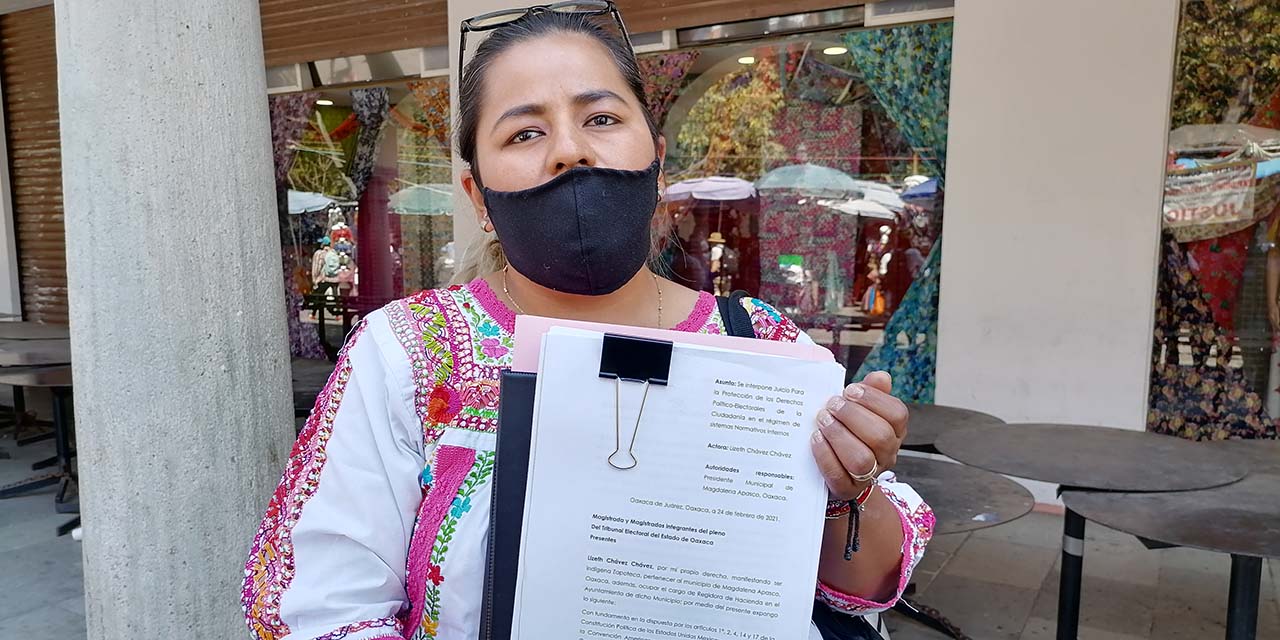 Asunto: Se interpone Juicio Para
la Protección de los Derechos
Político-Electorales de la
Ciudadanía en el régimen de
sistemas Normativos Internos
Actora: Lizeth Chávez Chávez
Autoridades responsables:
Presidente Municipal de
Magdalena Apasco, Oaxaca.
Oaxaca de Juárez, Oaxaca, a 24 de febrero de 2021.
Magistrada y Magistrados integrantes del pleno
Del Tribunal Electoral del Estado de Oaxaca
Presentes
Lizeth Chávez Chávez, por mi propio derecho, manifestando ser
Indígena Zapoteca, pertenecer al municipio de Magdalena Apasco,
Oaxaca, además, ocupar el cargo de Regidora de Hacienda en el
Ayuntamiento de dicho Municipio; por medio del presente expongo
lo siguiente:
Con fundamento en lo dispuesto por los artículos 1°, 2, 4, 14 y 17 de la
Constitución Política de los Estados Unidos
la Convención